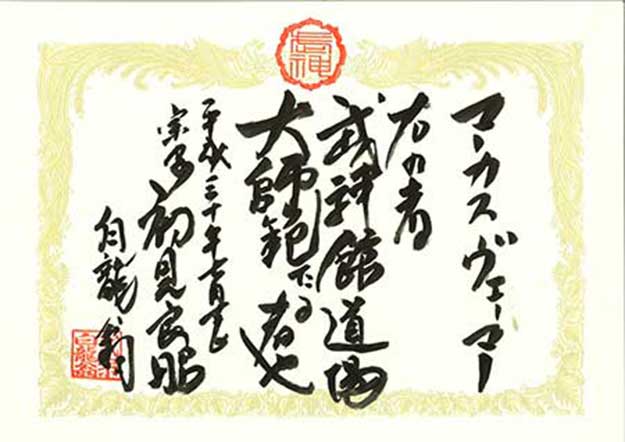 マーカスヴェーマー
右の者
武神館道場
大師範たる者也
平成三十年七月吉日
宗家 初見良昭
白龍翁